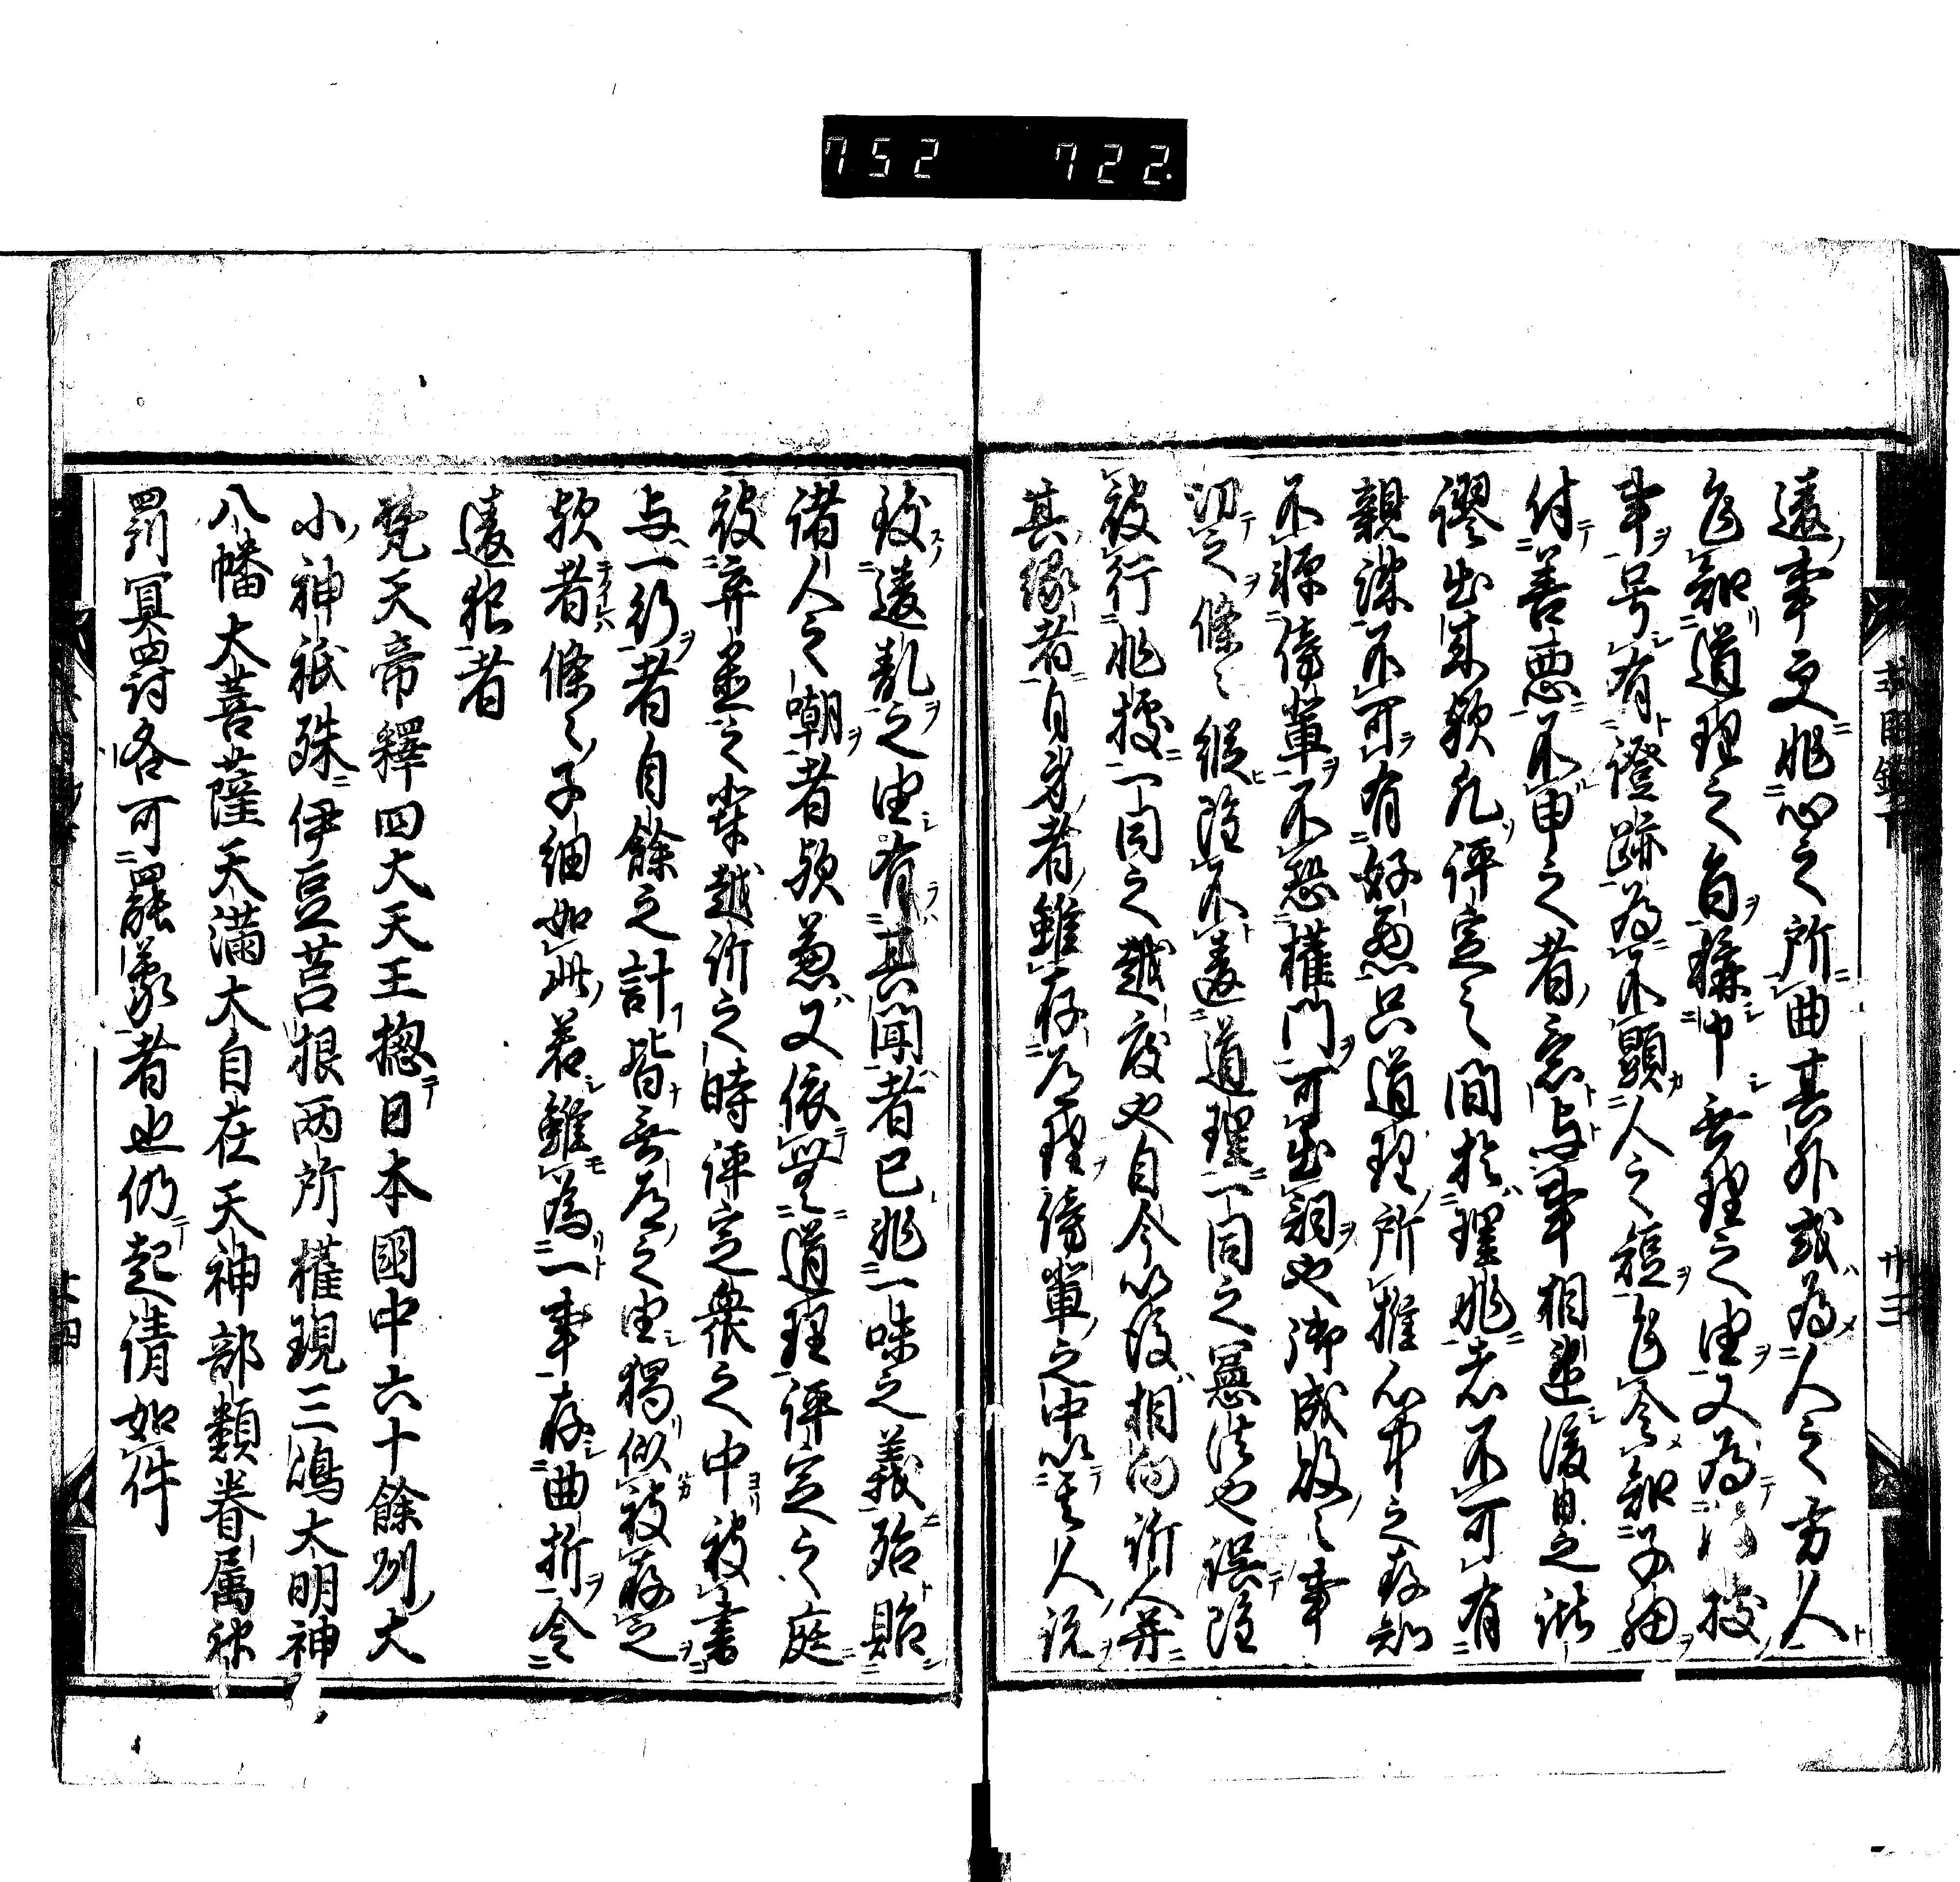 752 722.
違事更非心之所曲其外或為人之方人
乍知道理之旨稱申無理之由又為非據
事号有證跡為不顯人之短乍令知子細
付善悪不申之者意与事相違後日之
謬出来歟凡評定之間於理非者不可有
親疎不可有好悪只道理所推心中之存知
不憚傍輩不恐權門可出詞也御成敗之事
切之條々縱雖不違道理一同之憲法也誤雖
被行非據一同之越度也自今以後相向訴人并
其縁者自身者雖存道理傍輩之中以其人説
致違乱之由有其聞者已非一味之義殆貽
諸人之嘲者歟兼又依無道理評定之庭
被弃置之輩越訴之時評定衆之中被書
与一行者自餘之計皆無道之由獨似被存之
歟者條々子細如此若雖為一事存曲折令
違犯者
梵天帝釋四大天王惣日本國中六十餘列大
小神祇殊伊豆筥根两所權現三嶋大明神
八幡大菩薩天満大自在天神部類眷属神
罰冥罰各可罷蒙者也仍起請如件